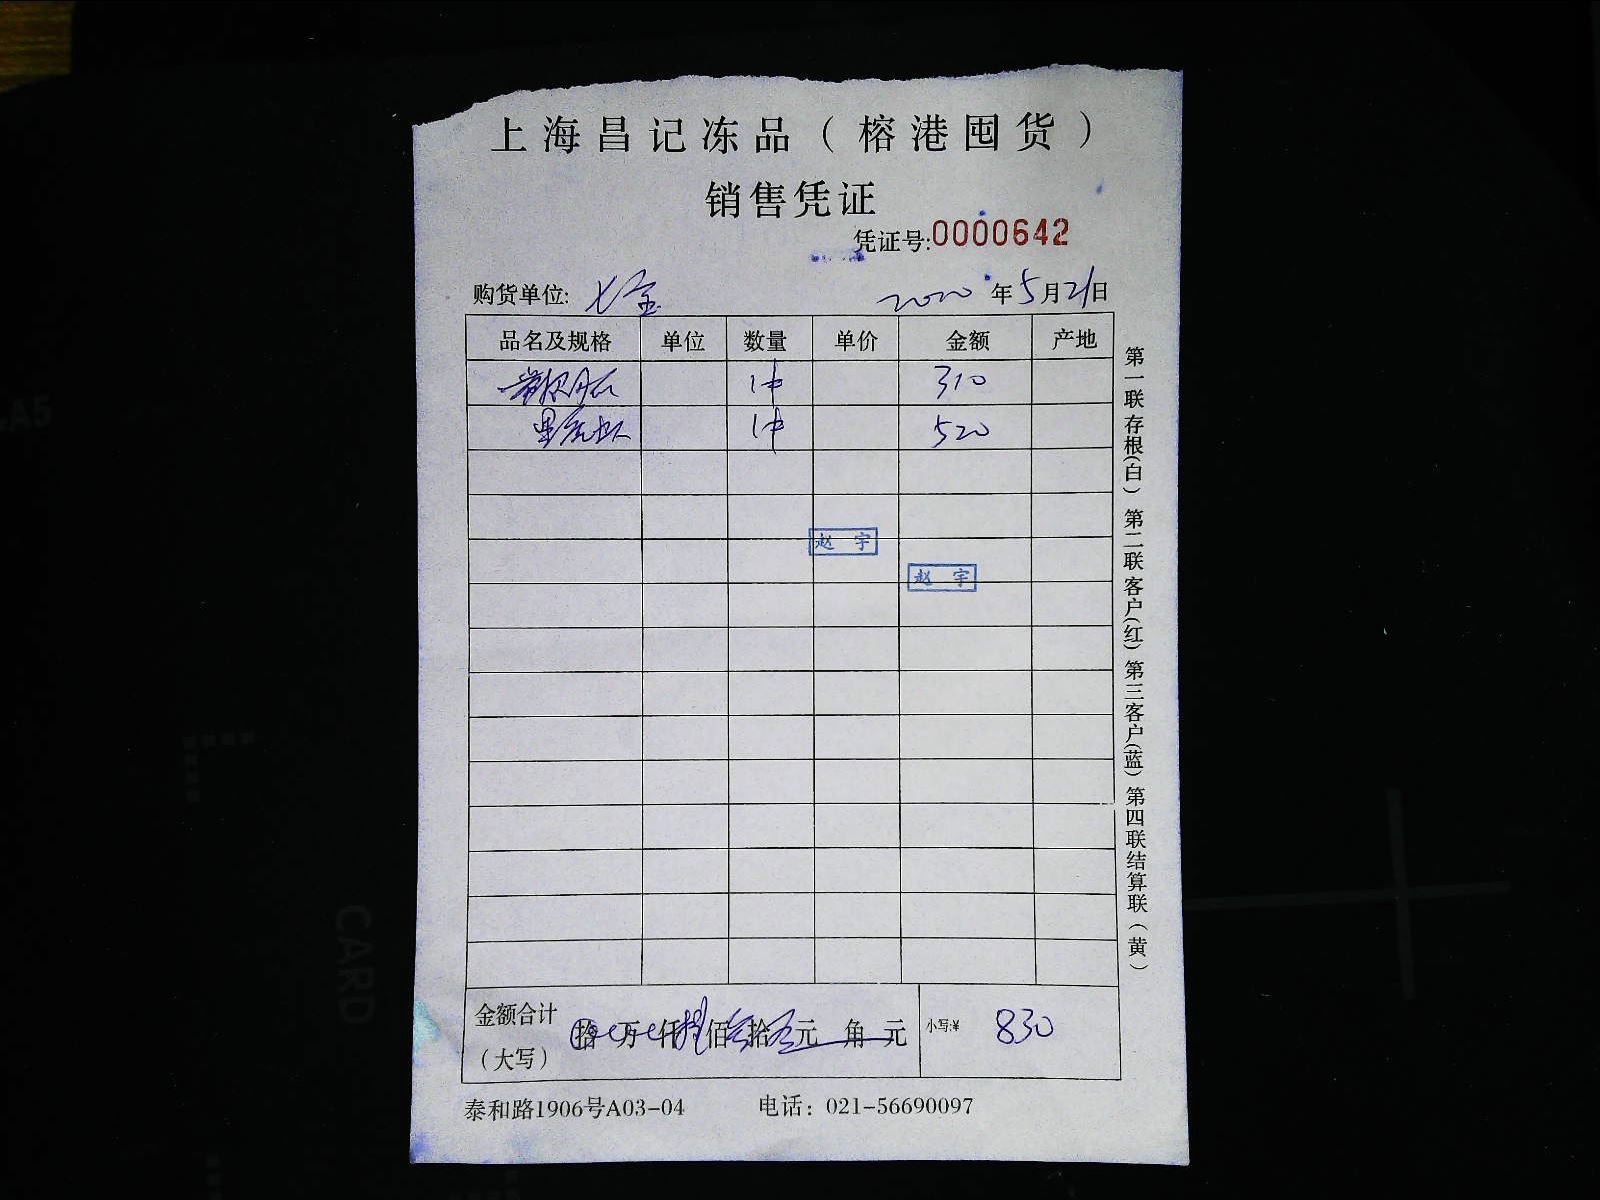 上海昌记冻品（榕港囤货）
销售凭证
凭证号:0000642
购货单位: 七宝 2020年5月21日
品名及规格 单位 数量 单价 金额 产地
1件 310
1件 520
赵 宇
赵 宇
金额合计（大写） 拾 万 仟 捌佰叁拾零元 角 元 小写:¥ 830
泰和路1906号A03-04 电话：021-56690097
第一联存根(白) 第二联客户(红) 第三客户(蓝) 第四联结算联（黄）
A5
CARD